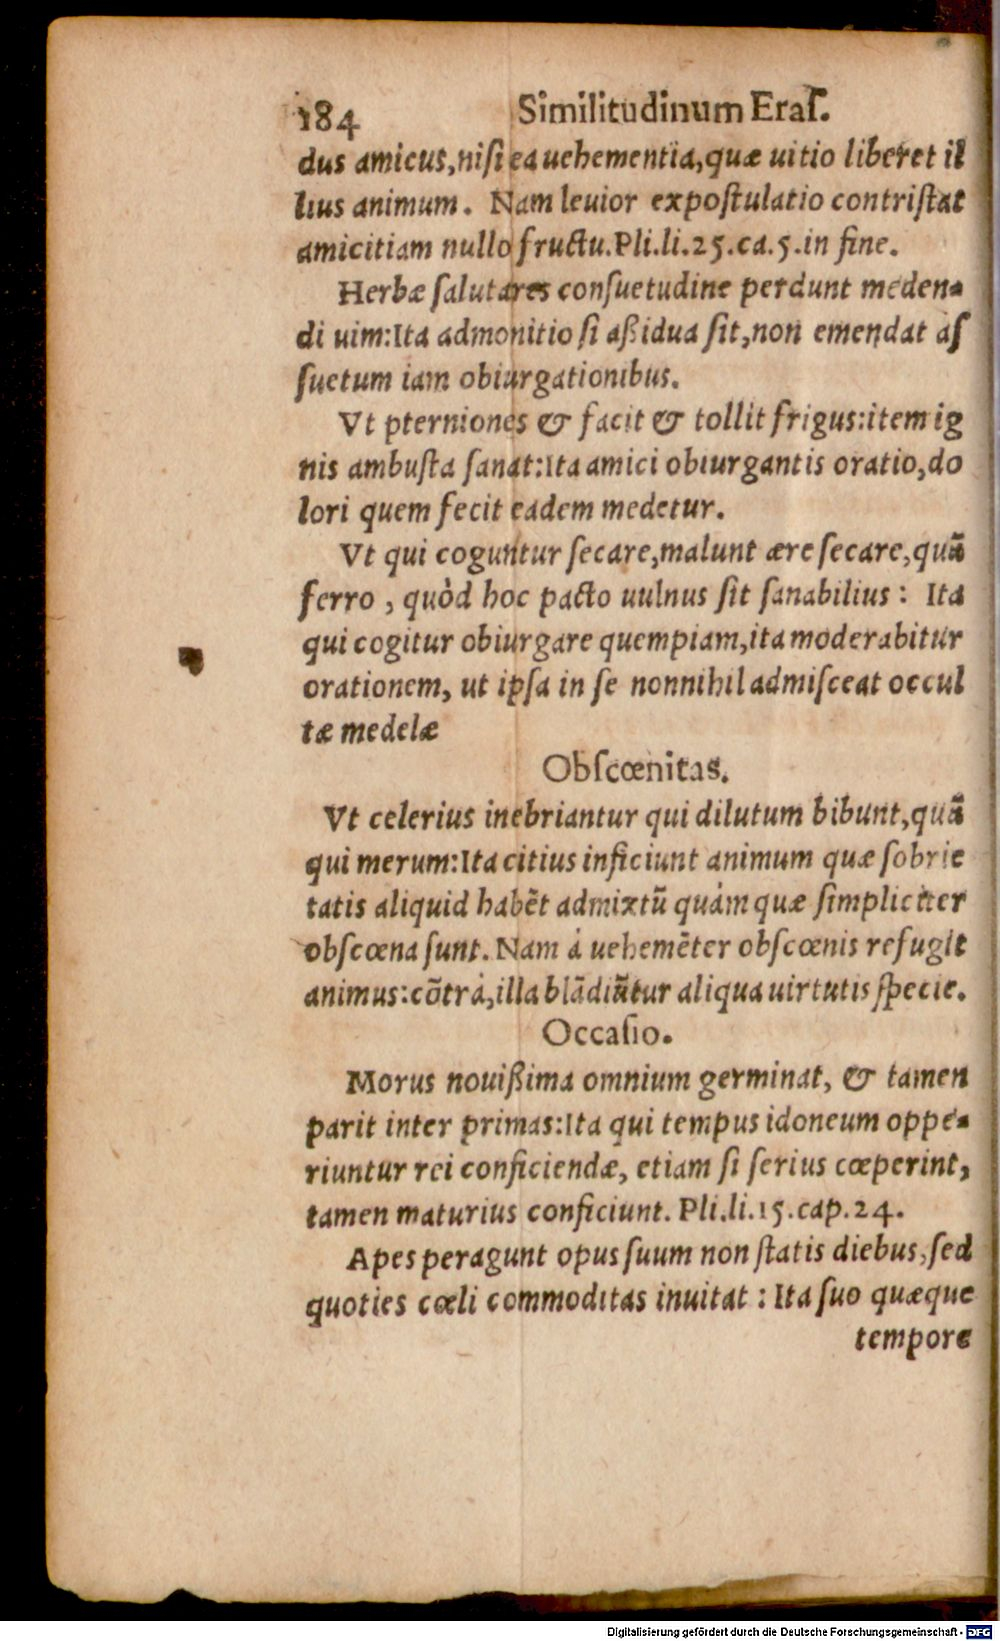 184 Similitudinum Eraſ.
dus amicus, niſi ea uehementia, quæ uitio liberet il
lius animum. Nam leuior expoſtulatio contriſtat
amicitiam nullo fructu. Pli. li. 25. ca. 5. in fine.
Herbæ ſalutares conſuetudine perdunt meden-
di uim: Ita admonitio ſi aßidua ſit, non emendat aſ
ſuetum iam obiurgationibus.
Vt pterniones & facit & tollit frigus: item ig
nis ambuſta ſanat: Ita amici obiurgantis oratio, do
lori quem fecit eadem medetur.
Vt qui coguntur ſecare, malunt ære ſecare, quã
ferro, quòd hoc pacto uulnus ſit ſanabilius: Ita
qui cogitur obiurgare quempiam, ita moderabitur
orationem, ut ipſa in ſe nonnihil admiſceat occul
tæ medelæ
Obſcœnitas.
Vt celerius inebriantur qui dilutum bibunt, quã
qui merum: Ita citius inficiunt animum quæ ſobrie
tatis aliquid habẽt admixtũ quàm quæ ſimpliciter
obſcœna ſunt. Nam à uehemẽter obſcœnis refugit
animus: cõtrà, illa blãdiũtur aliqua uirtutis ſpecie.
Occaſio.
Morus nouißima omnium germinat, & tamen
parit inter primas: Ita qui tempus idoneum oppe-
riuntur rei conficiendæ, etiam ſi ſerius cœperint,
tamen maturius conficiunt. Pli. li. 15. cap. 24.
Apes peragunt opus ſuum non ſtatis diebus, ſed
quoties cœli commoditas inuitat: Ita ſuo quæque
tempore
Digitalisierung gefördert durch die Deutsche Forschungsgemeinschaft - DFG